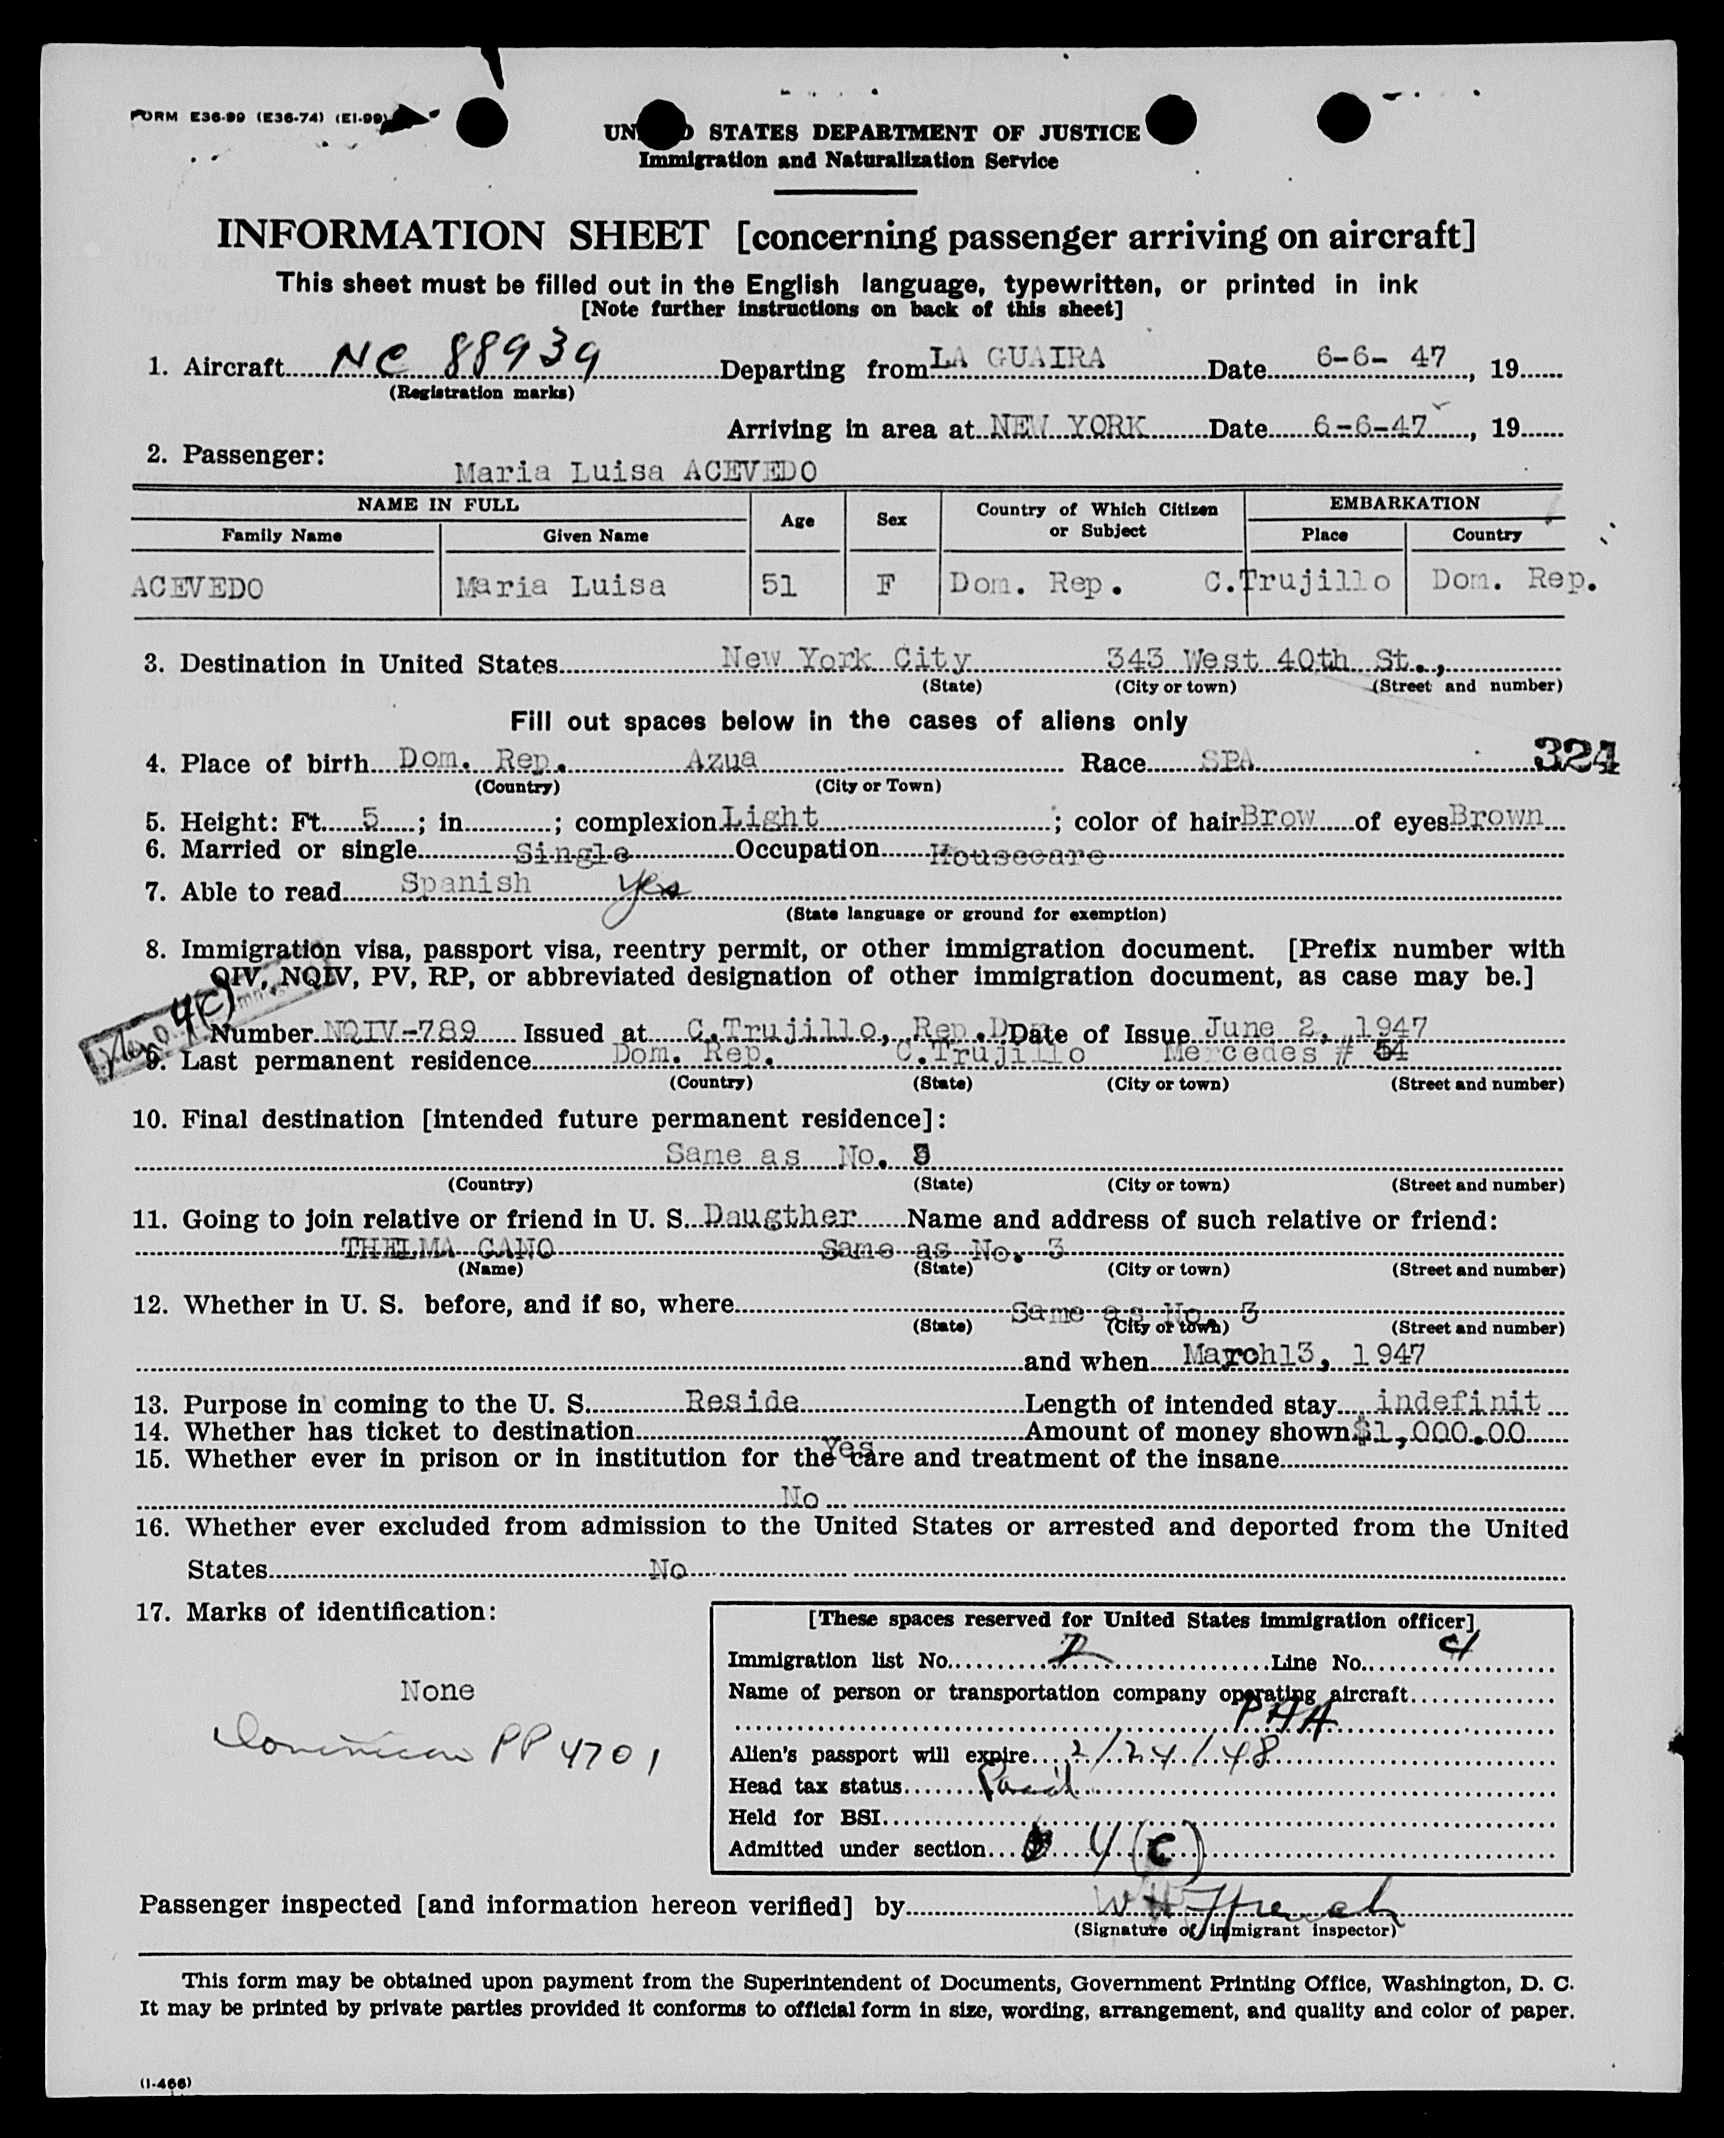 FORM E36-99 (E36-74) (EI-99)
STATES DEPARTMENT OF JUSTICE
Immigration and Naturalization Service
INFORMATION SHEET [concerning passenger arriving on aircraft]
This sheet must be filled out in the English language, typewritten, or printed in ink
[Note further instructions on back of this sheet]
1. Aircraft NC 88939 Departing from LA GUAIRA Date 6-6- 47, 19
(Registration marks)
Arriving in area at NEW YORK Date 6-6-47, 19
2. Passenger:
Maria Luisa ACEVEDO
NAME IN FULL Age Sex Country of Which Citizen or Subject EMBARKATION
Family Name Given Name Place Country
ACEVEDO Maria Luisa 51 F Dom. Rep. C.Trujillo Dom. Rep.
3. Destination in United States New York City 343 West 40th St.,
(State) (City or town) (Street and number)
Fill out spaces below in the cases of aliens only
4. Place of birth Dom. Rep. Azua Race SPA 324
(Country) (City or Town)
5. Height: Ft. 5; in.; complexion Light; color of hair Brow of eyes Brown
6. Married or single Single Occupation Housecare
7. Able to read Spanish yes
(State language or ground for exemption)
8. Immigration visa, passport visa, reentry permit, or other immigration document. [Prefix number with
QIV, NQIV, PV, RP, or abbreviated designation of other immigration document, as case may be.]
4(c)
Number NQIV-789 Issued at C.Trujillo, Rep.Dom Date of Issue June 2, 1947
9. Last permanent residence Dom. Rep. C.Trujillo Mercedes # 54
(Country) (State) (City or town) (Street and number)
10. Final destination [intended future permanent residence]:
Same as No.
(Country) (State) (City or town) (Street and number)
11. Going to join relative or friend in U. S. Daugther Name and address of such relative or friend:
THELMA CANO Same as No. 3
(Name) (State) (City or town) (Street and number)
12. Whether in U. S. before, and if so, where Same as No. 3
(State) (City or town) (Street and number)
and when March13, 1947
13. Purpose in coming to the U. S. Reside Length of intended stay indefinit
14. Whether has ticket to destination Yes Amount of money shown $1,000.00
15. Whether ever in prison or in institution for the care and treatment of the insane
No
16. Whether ever excluded from admission to the United States or arrested and deported from the United
States No
17. Marks of identification:
None
Dominican PP 4701
[These spaces reserved for United States immigration officer]
Immigration list No. 2 Line No. 4
Name of person or transportation company operating aircraft
PAA
Alien's passport will expire 2/24/48
Head tax status Paid
Held for BSI
Admitted under section 4(c)
Passenger inspected [and information hereon verified] by W H Ffrench
(Signature of immigrant inspector)
This form may be obtained upon payment from the Superintendent of Documents, Government Printing Office, Washington, D. C.
It may be printed by private parties provided it conforms to official form in size, wording, arrangement, and quality and color of paper.
(I-466)